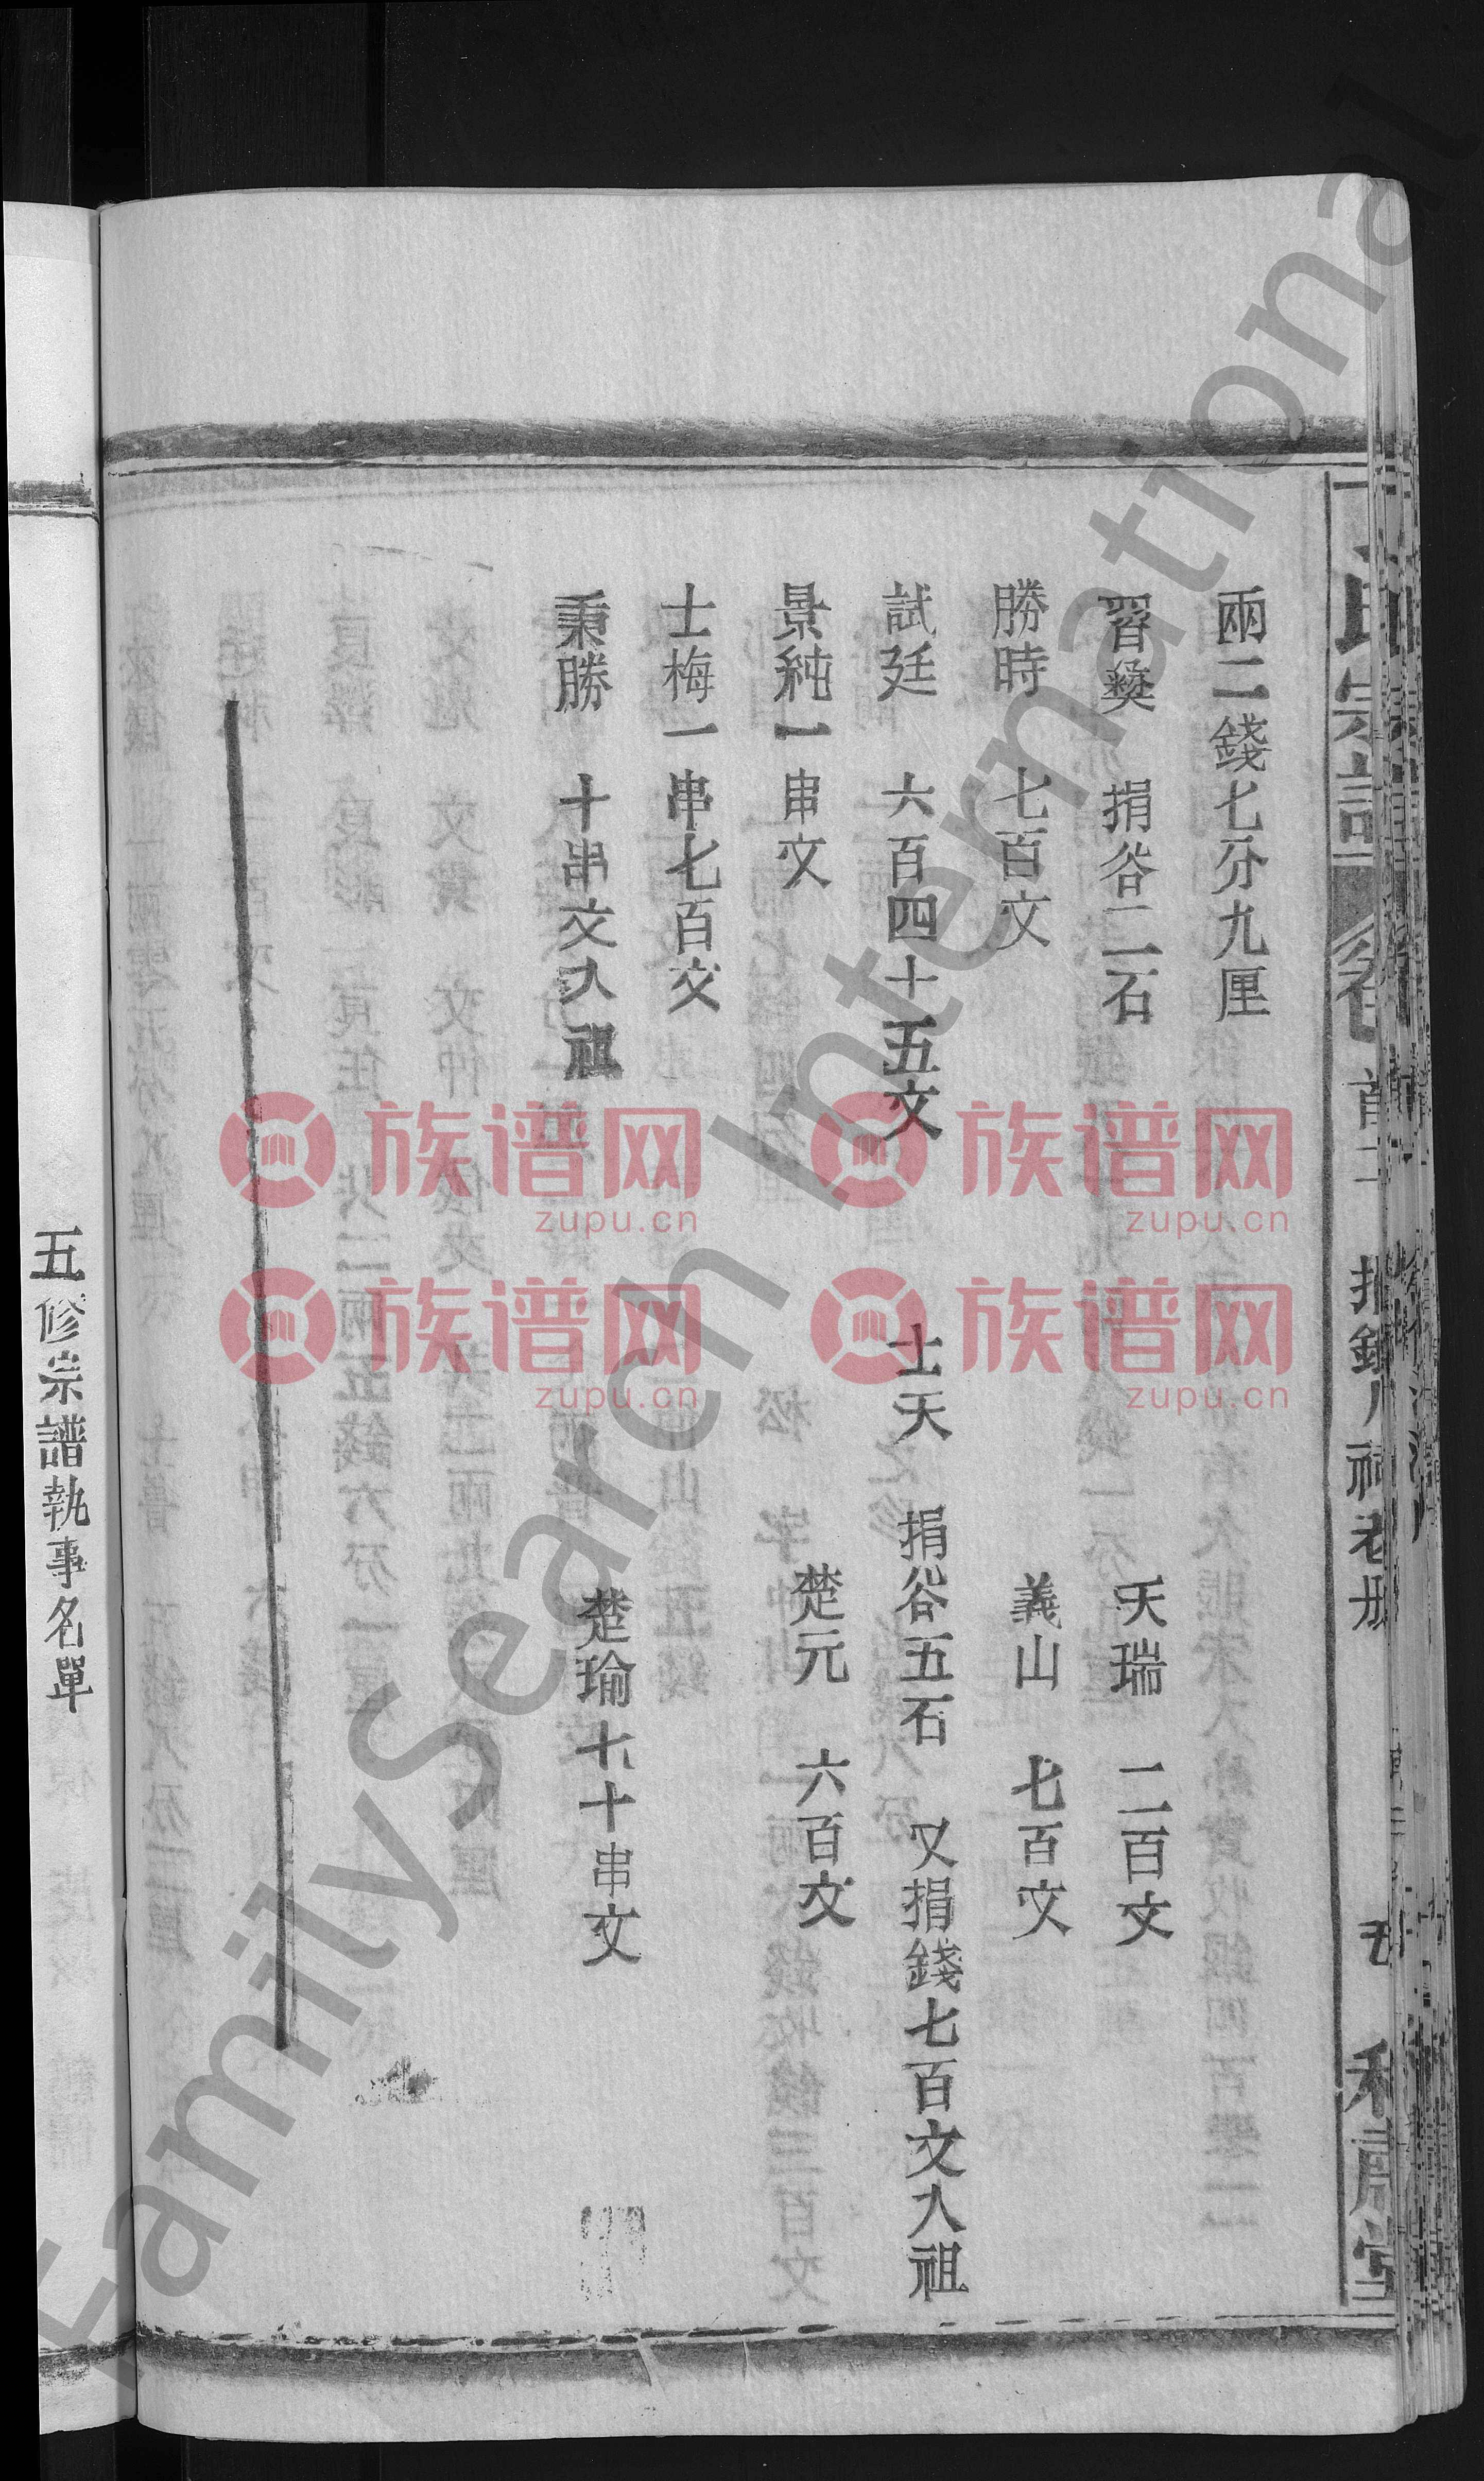 兩二錢七分九厘
習彝　捐谷二石　天瑞　二百文
勝時　七百文　義山　七百文
試廷　六百四十五文　士天　捐谷五石　又捐錢七百文入祖
景純一串文　楚元　六百文
士梅一串七百文
秉勝　十串文入祖　楚瑜七十串文
五修宗譜執事名單
族谱网
zupu.cn
族谱网
zupu.cn
族谱网
zupu.cn
族谱网
zupu.cn
FamilySearch International